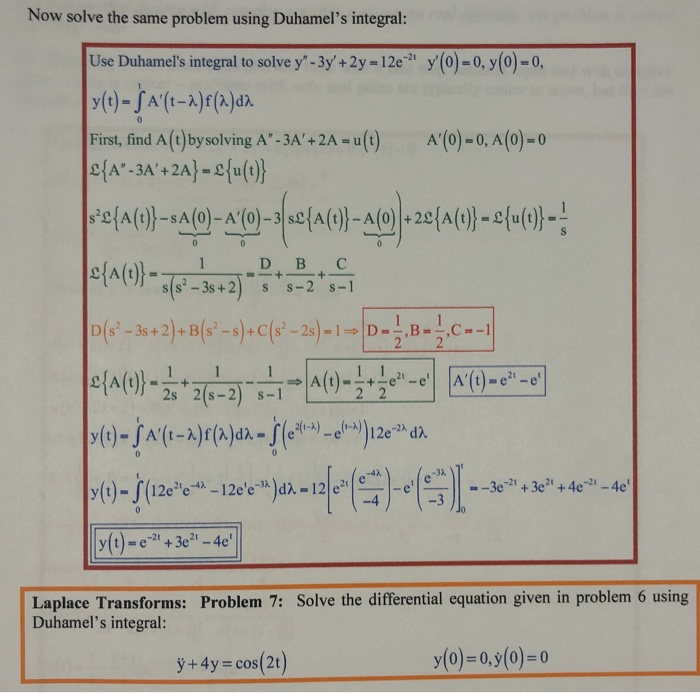 Now solve the same problem using Duhamel's integral:
Use Duhamel's integral to solve y" - 3y' + 2y = 12e⁻²ᵗ y'(0) = 0, y(0) = 0,
y(t) = ∫₀ᵗ A'(t−λ)f(λ)dλ
First, find A(t) by solving A" - 3A' + 2A = u(t) A'(0) = 0, A(0) = 0
ℒ{A" - 3A' + 2A} = ℒ{u(t)}
s²ℒ{A(t)} − sA(0) − A'(0) − 3(sℒ{A(t)} − A(0)) + 2ℒ{A(t)} = ℒ{u(t)} = 1/s
0 0 0
ℒ{A(t)} = 1/(s(s² − 3s + 2)) = D/s + B/(s−2) + C/(s−1)
D(s² − 3s + 2) + B(s² − s) + C(s² − 2s) = 1 ⇒ D = 1/2, B = 1/2, C = −1
ℒ{A(t)} = 1/(2s) + 1/(2(s−2)) − 1/(s−1) ⇒ A(t) = 1/2 + 1/2 e²ᵗ − eᵗ A'(t) = e²ᵗ − eᵗ
y(t) = ∫₀ᵗ A'(t−λ)f(λ)dλ = ∫₀ᵗ (e^(2(t−λ)) − e^(t−λ)) 12e^(−2λ) dλ
y(t) = ∫₀ᵗ (12e²ᵗe^(−4λ) − 12eᵗe^(−3λ))dλ = 12[e²ᵗ(e^(−4λ)/−4) − eᵗ(e^(−3λ)/−3)]₀ᵗ = −3e⁻²ᵗ + 3e²ᵗ + 4e⁻²ᵗ − 4eᵗ
y(t) = e⁻²ᵗ + 3e²ᵗ − 4eᵗ
Laplace Transforms: Problem 7: Solve the differential equation given in problem 6 using
Duhamel's integral:
ÿ + 4y = cos(2t) y(0) = 0, ẏ(0) = 0